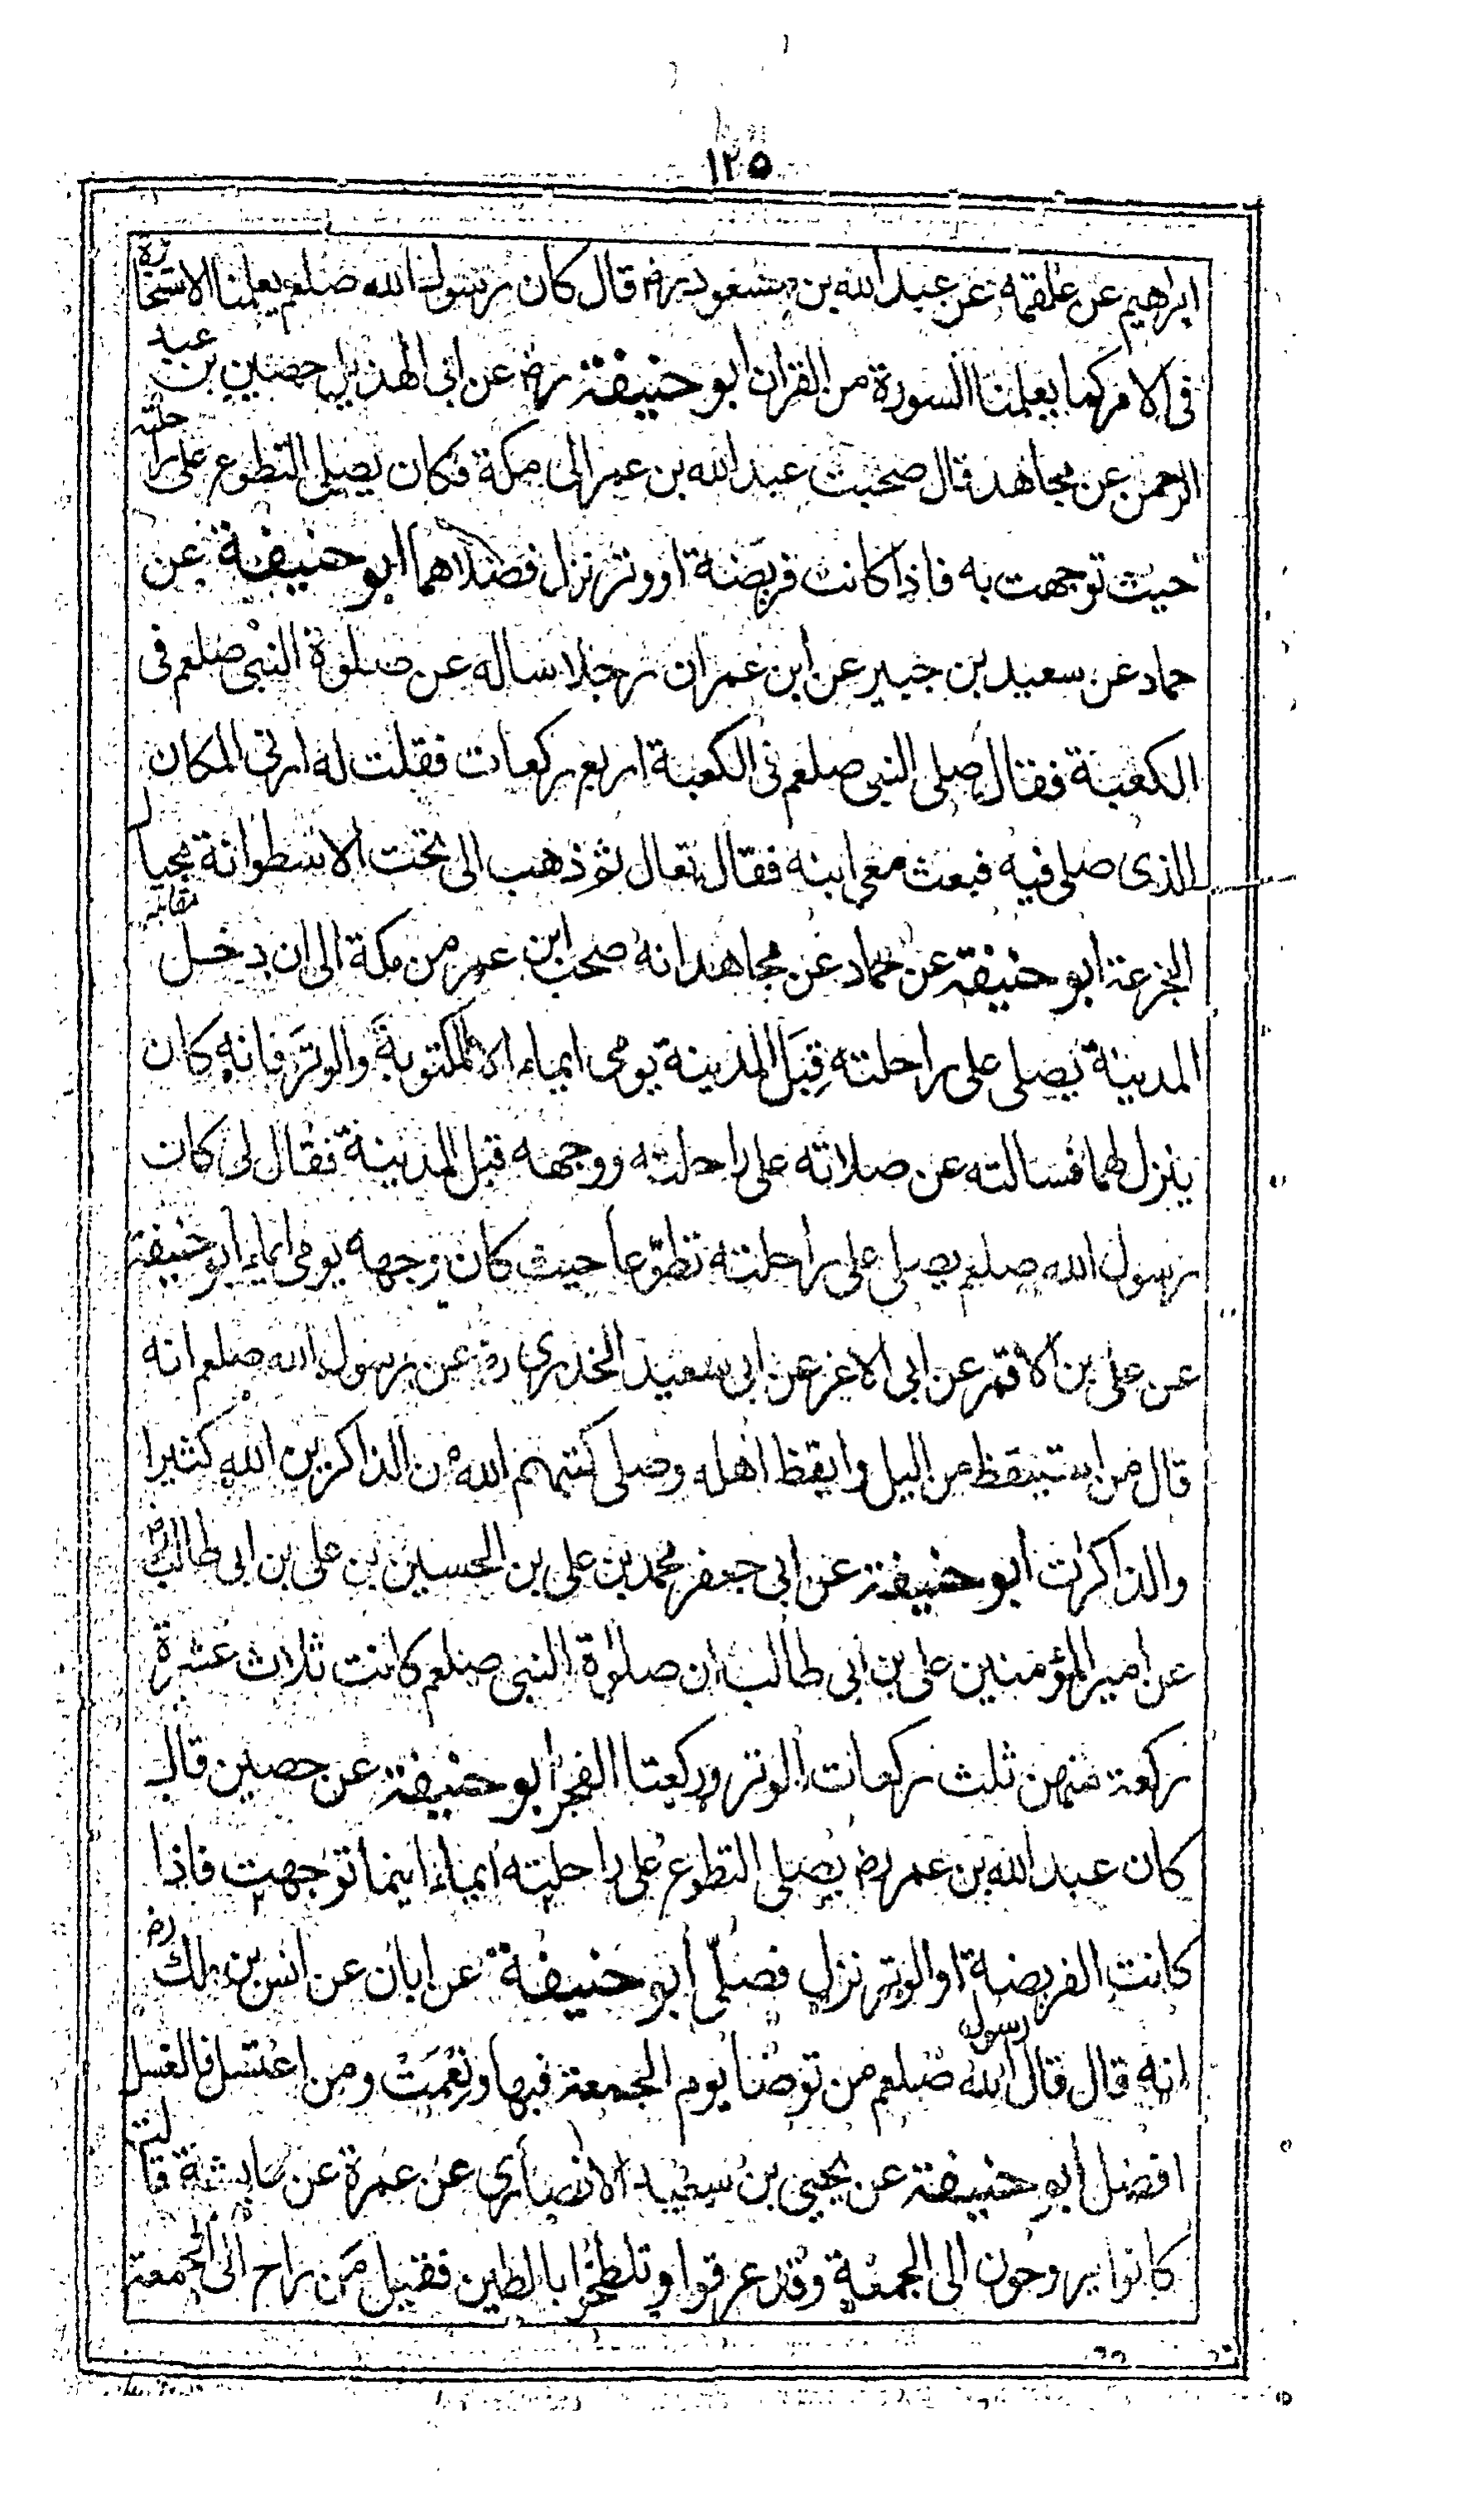 ١٢٥
ابراهيم عن علقمة عن عبد الله بن مسعود رض قال كان رسول الله صلعم يعلمنا الاستخارة
فى الامر كما يعلمنا السورة من القران ابو حنيفة رض عن ابى الهذيل حصين بن عبد
الرحمن عن مجاهد قال صحبت عبد الله بن عمر الى مكة فكان يصلى التطوع على راحلته
حيث توجهت به فاذا كانت فريضة او وتر نزل فصلاهما ابو حنيفة عن
حماد عن سعيد بن جبير عن ابن عمر ان رجلا ساله عن صلوة النبى صلعم فى
الكعبة فقال صلى النبى صلعم فى الكعبة اربع ركعات فقلت له ارنى المكان
الذى صلى فيه فبعث معى ابنه فقال تعال ثم ذهب الى تحت الاسطوانة بحيال
الجزعة ابو حنيفة عن حماد عن مجاهد انه صحب ابن عمر من مكة الى ان دخل
المدينة يصلى على راحلته قِبَل المدينة يومى ايماء الا المكتوبة والوتر فانه كان
ينزل لهما فسالته عن صلاته على راحلته ووجهه قبل المدينة فقال لى كان
رسول الله صلعم يصلى على راحلته تطوّعا حيث كان وجهه يومى ايماء ابو حنيفة
عن على بن الاقمر عن ابى الاغر عن ابى سعيد الخدري رض عن رسول الله صلعم انه
قال من استيقظ من اليل وايقظ اهله وصلى كتبهم الله من الذاكرين الله كثيرا
والذاكرات ابو حنيفة عن ابى جعفر محمد بن على بن الحسين بن على بن ابى طالب رض
عن امير المؤمنين على بن ابى طالب ان صلوة النبى صلعم كانت ثلاث عشرة
ركعة منهن ثلث ركعات الوتر وركعتا الفجر ابو حنيفة عن حصين قال
كان عبد الله بن عمر رض يصلى التطوع على راحلته ايماء اينما توجهت فاذا
كانت الفريضة او الوتر نزل فصلّى ابو حنيفة عن ابان عن انس بن ملك رض
انه قال قال رسول الله صلعم من توضا يوم الجمعة فبها ونِعْمَتْ ومن اغتسل فالغسل
افضل ابو حنيفة عن يحيى بن سعيد الانصاري عن عمرة عن عايشة قالت
كانوا يروحون الى الجمعة وقد عرقوا وتلطخوا بالطين فقيل مَن راح الى الجمعة